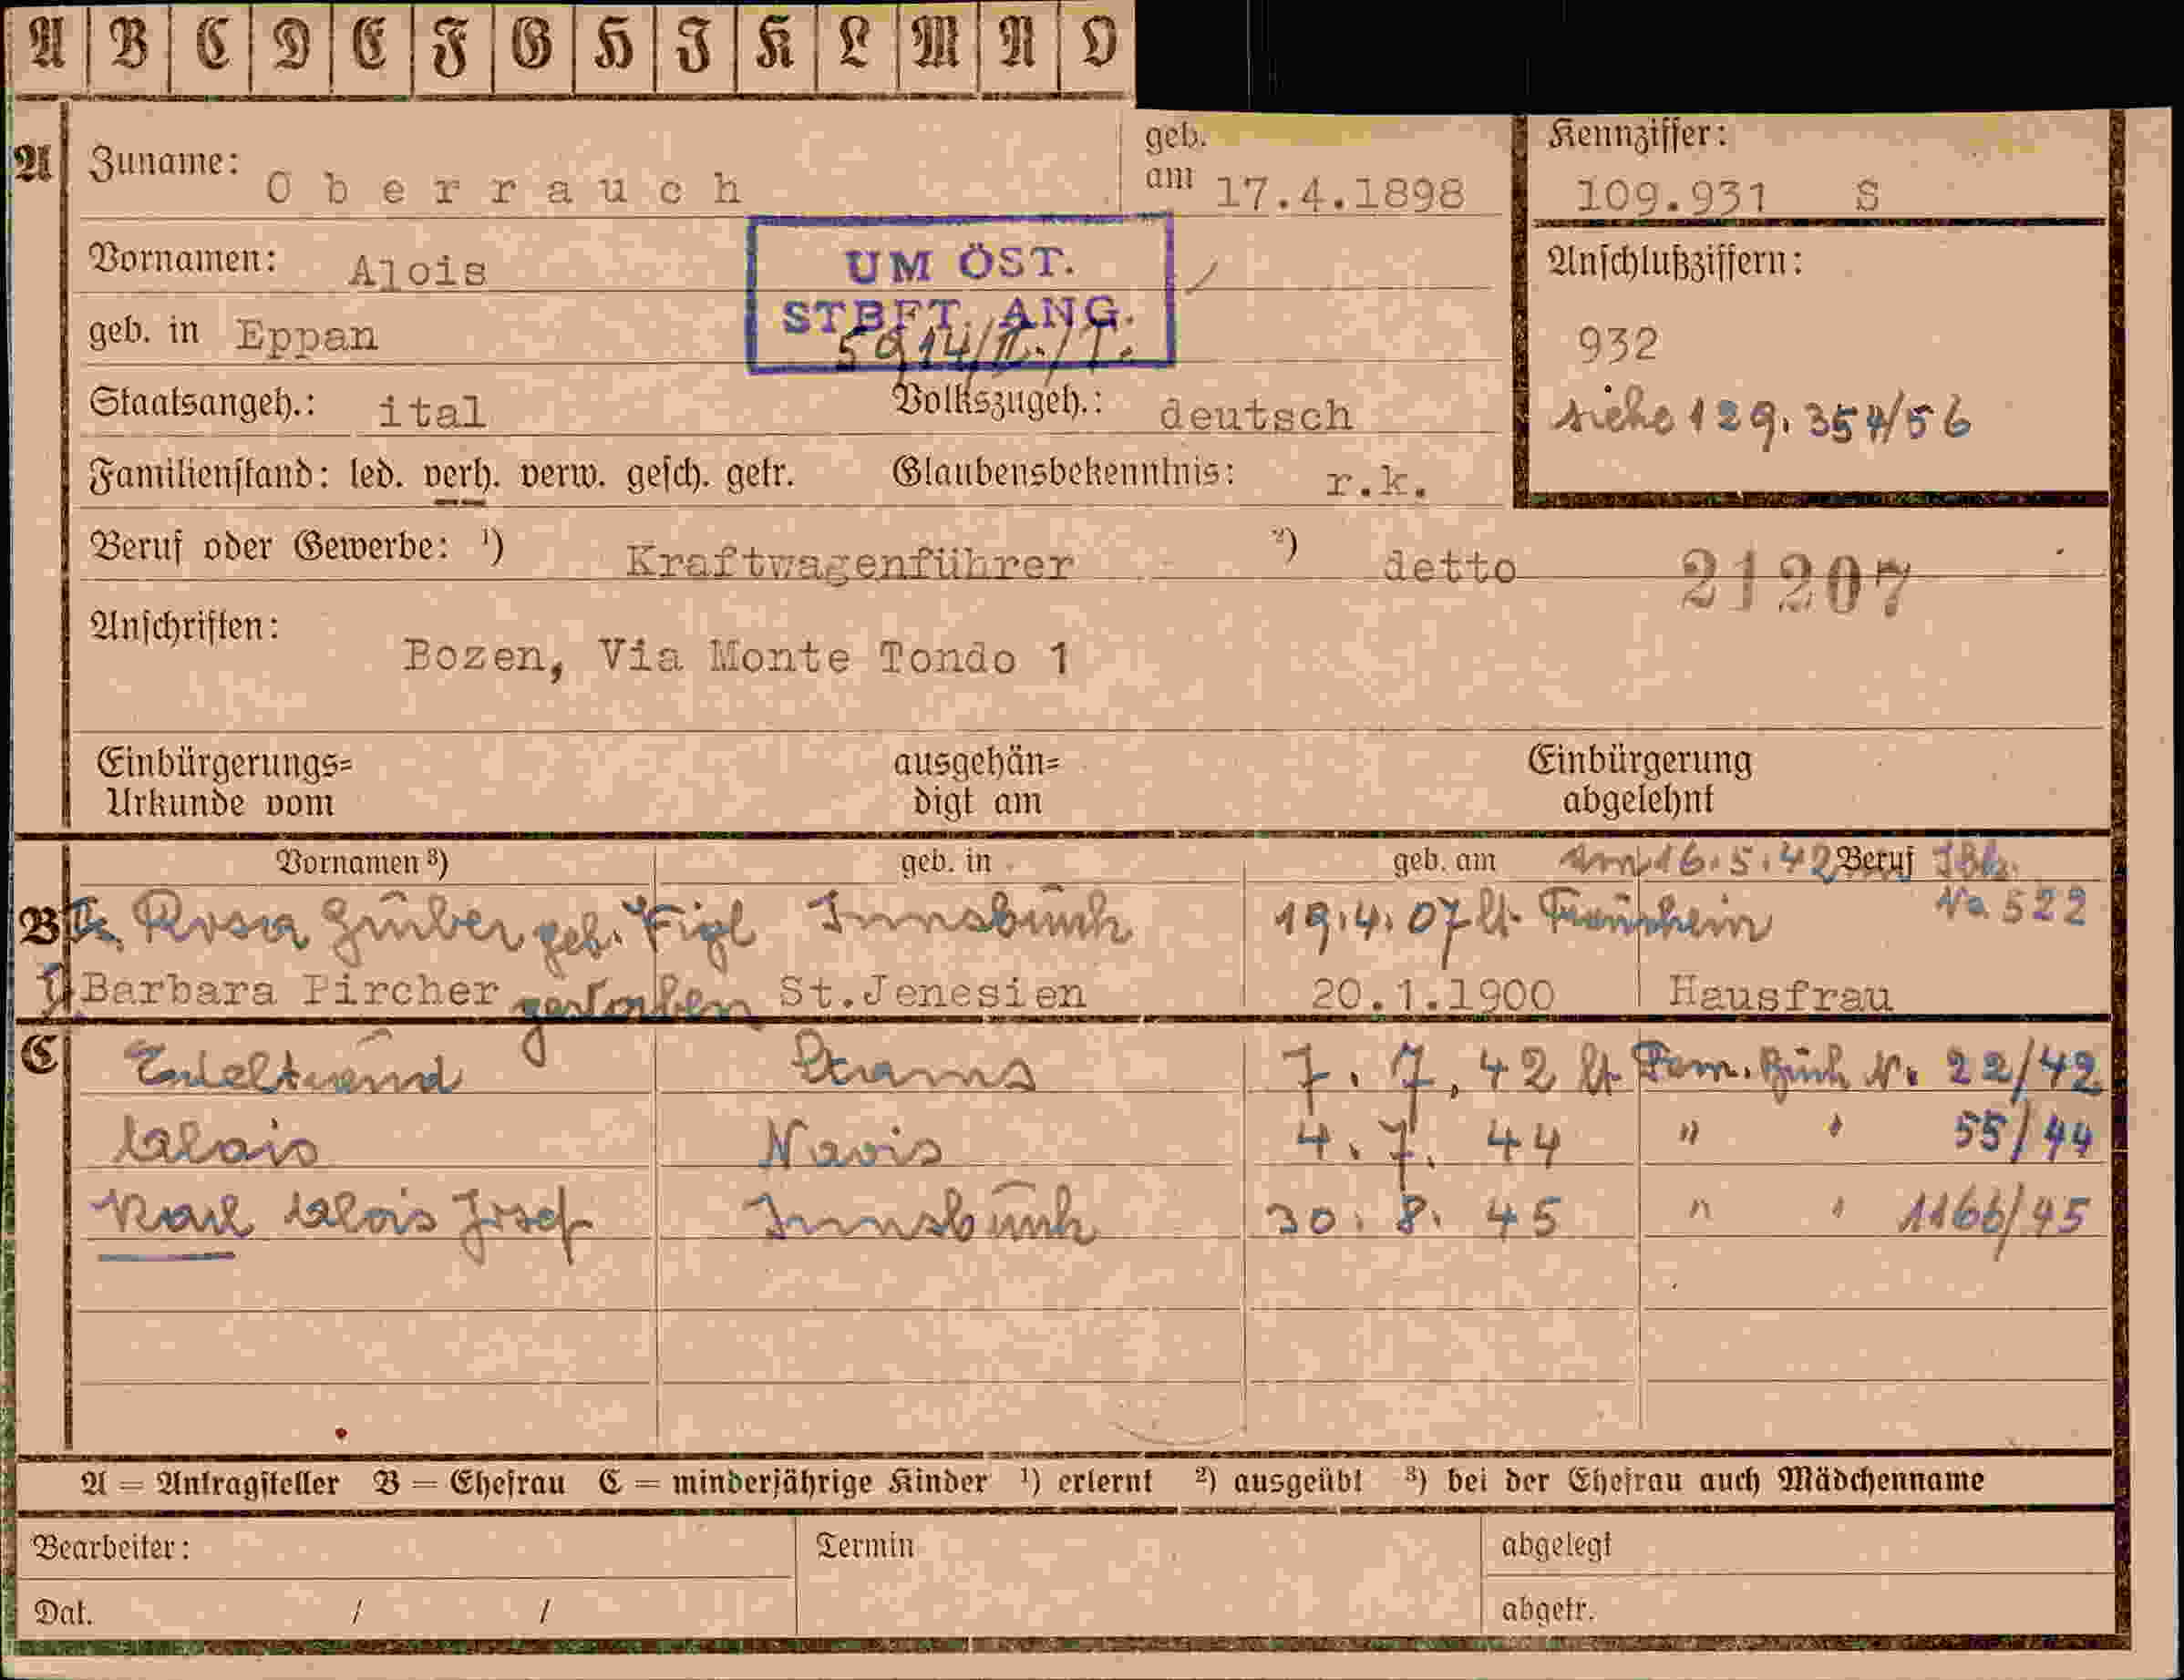 A B C D E F G H I K L M N O
A Zuname: Oberrauch geb. am 17.4.1898 Kennziffer: 109.931 S
Vornamen: Alois
UM ÖST.
STBFT. ANG.
5914/II./T.
Anschlußziffern:
geb. in Eppan
932
Staatsangeh.: ital Volkszugeh.: deutsch
siehe 129.354/56
Familienstand: led. verh. verw. gesch. getr. Glaubensbekenntnis: r.k.
Beruf oder Gewerbe: ¹) Kraftwagenführer ²) detto 21207
Anschriften:
Bozen, Via Monte Tondo 1
Einbürgerungs=
Urkunde vom
ausgehän=
digt am
Einbürgerung
abgelehnt
Vornamen ³) geb. in geb. am am 16.5.42 Beruf Ibk.
B Rosa Gruber geb. Figl Innsbruck 19.4.07 lt. No 522
1) Barbara Pircher gestorben St.Jenesien 20.1.1900 Hausfrau
C Edeltrud Stams 7.7.42 lt. Fam. Buch N. 22/42
Alois Navis 4.7.44 " " 55/44
Karl Alois Josef Innsbruck 30.8.45 " " 1166/45
A = Antragsteller B = Ehefrau C = minderjährige Kinder ¹) erlernt ²) ausgeübt ³) bei der Ehefrau auch Mädchenname
Bearbeiter: Termin abgelegt
Dat. / / abgetr.